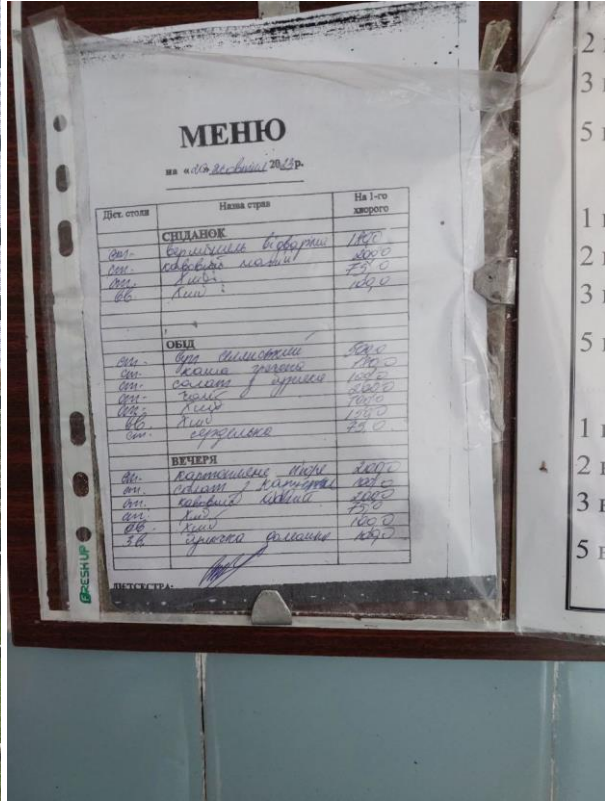 МЕНЮ
на «20» жовтня 2023 р.
Дієт. столи Назва страв На 1-го хворого
СНІДАНОК
ст. вермішель відварна 180,0
ст. кавовий напій 200,0
ст. хліб 75,0
вв. хліб 100,0
ОБІД
ст. суп селянський 500,0
ст. каша
ст. салат з буряка 100,0
ст. 200,0
ст. хліб
вв. хліб 150,0
ст. сарделька 75,0
ВЕЧЕРЯ
ст. картопляне пюре 200,0
ст. салат з капусти 100,0
ст. кавовий напій 200,0
ст. хліб 75,0
вв. хліб 100,0
зв. булочка домашня 100,0
ДІЄТСЕСТРА:
FRESH UP
2
3
5
1
2
3
5
1
2
3
5